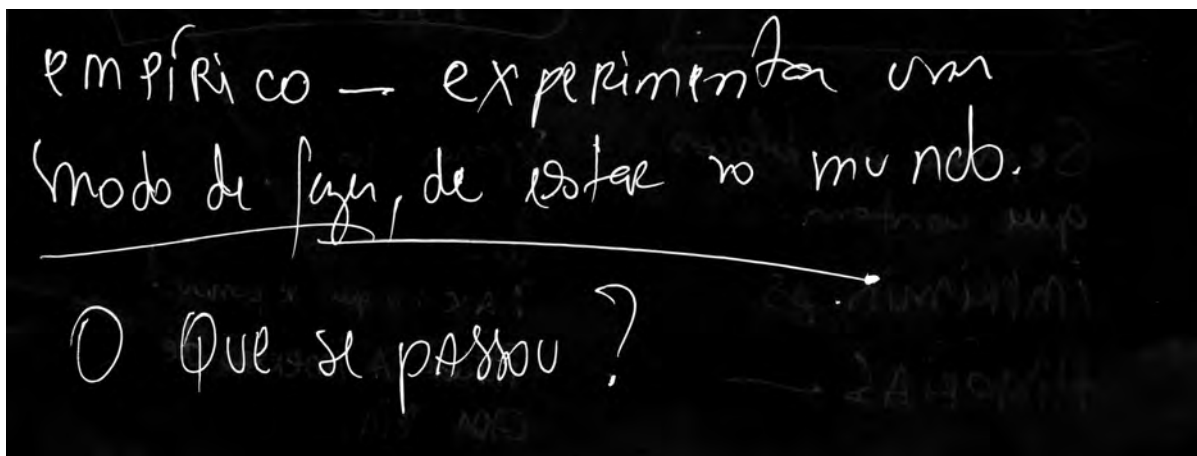 empírico — experimentar um
modo de fazer, de estar no mundo.
O que se passou?